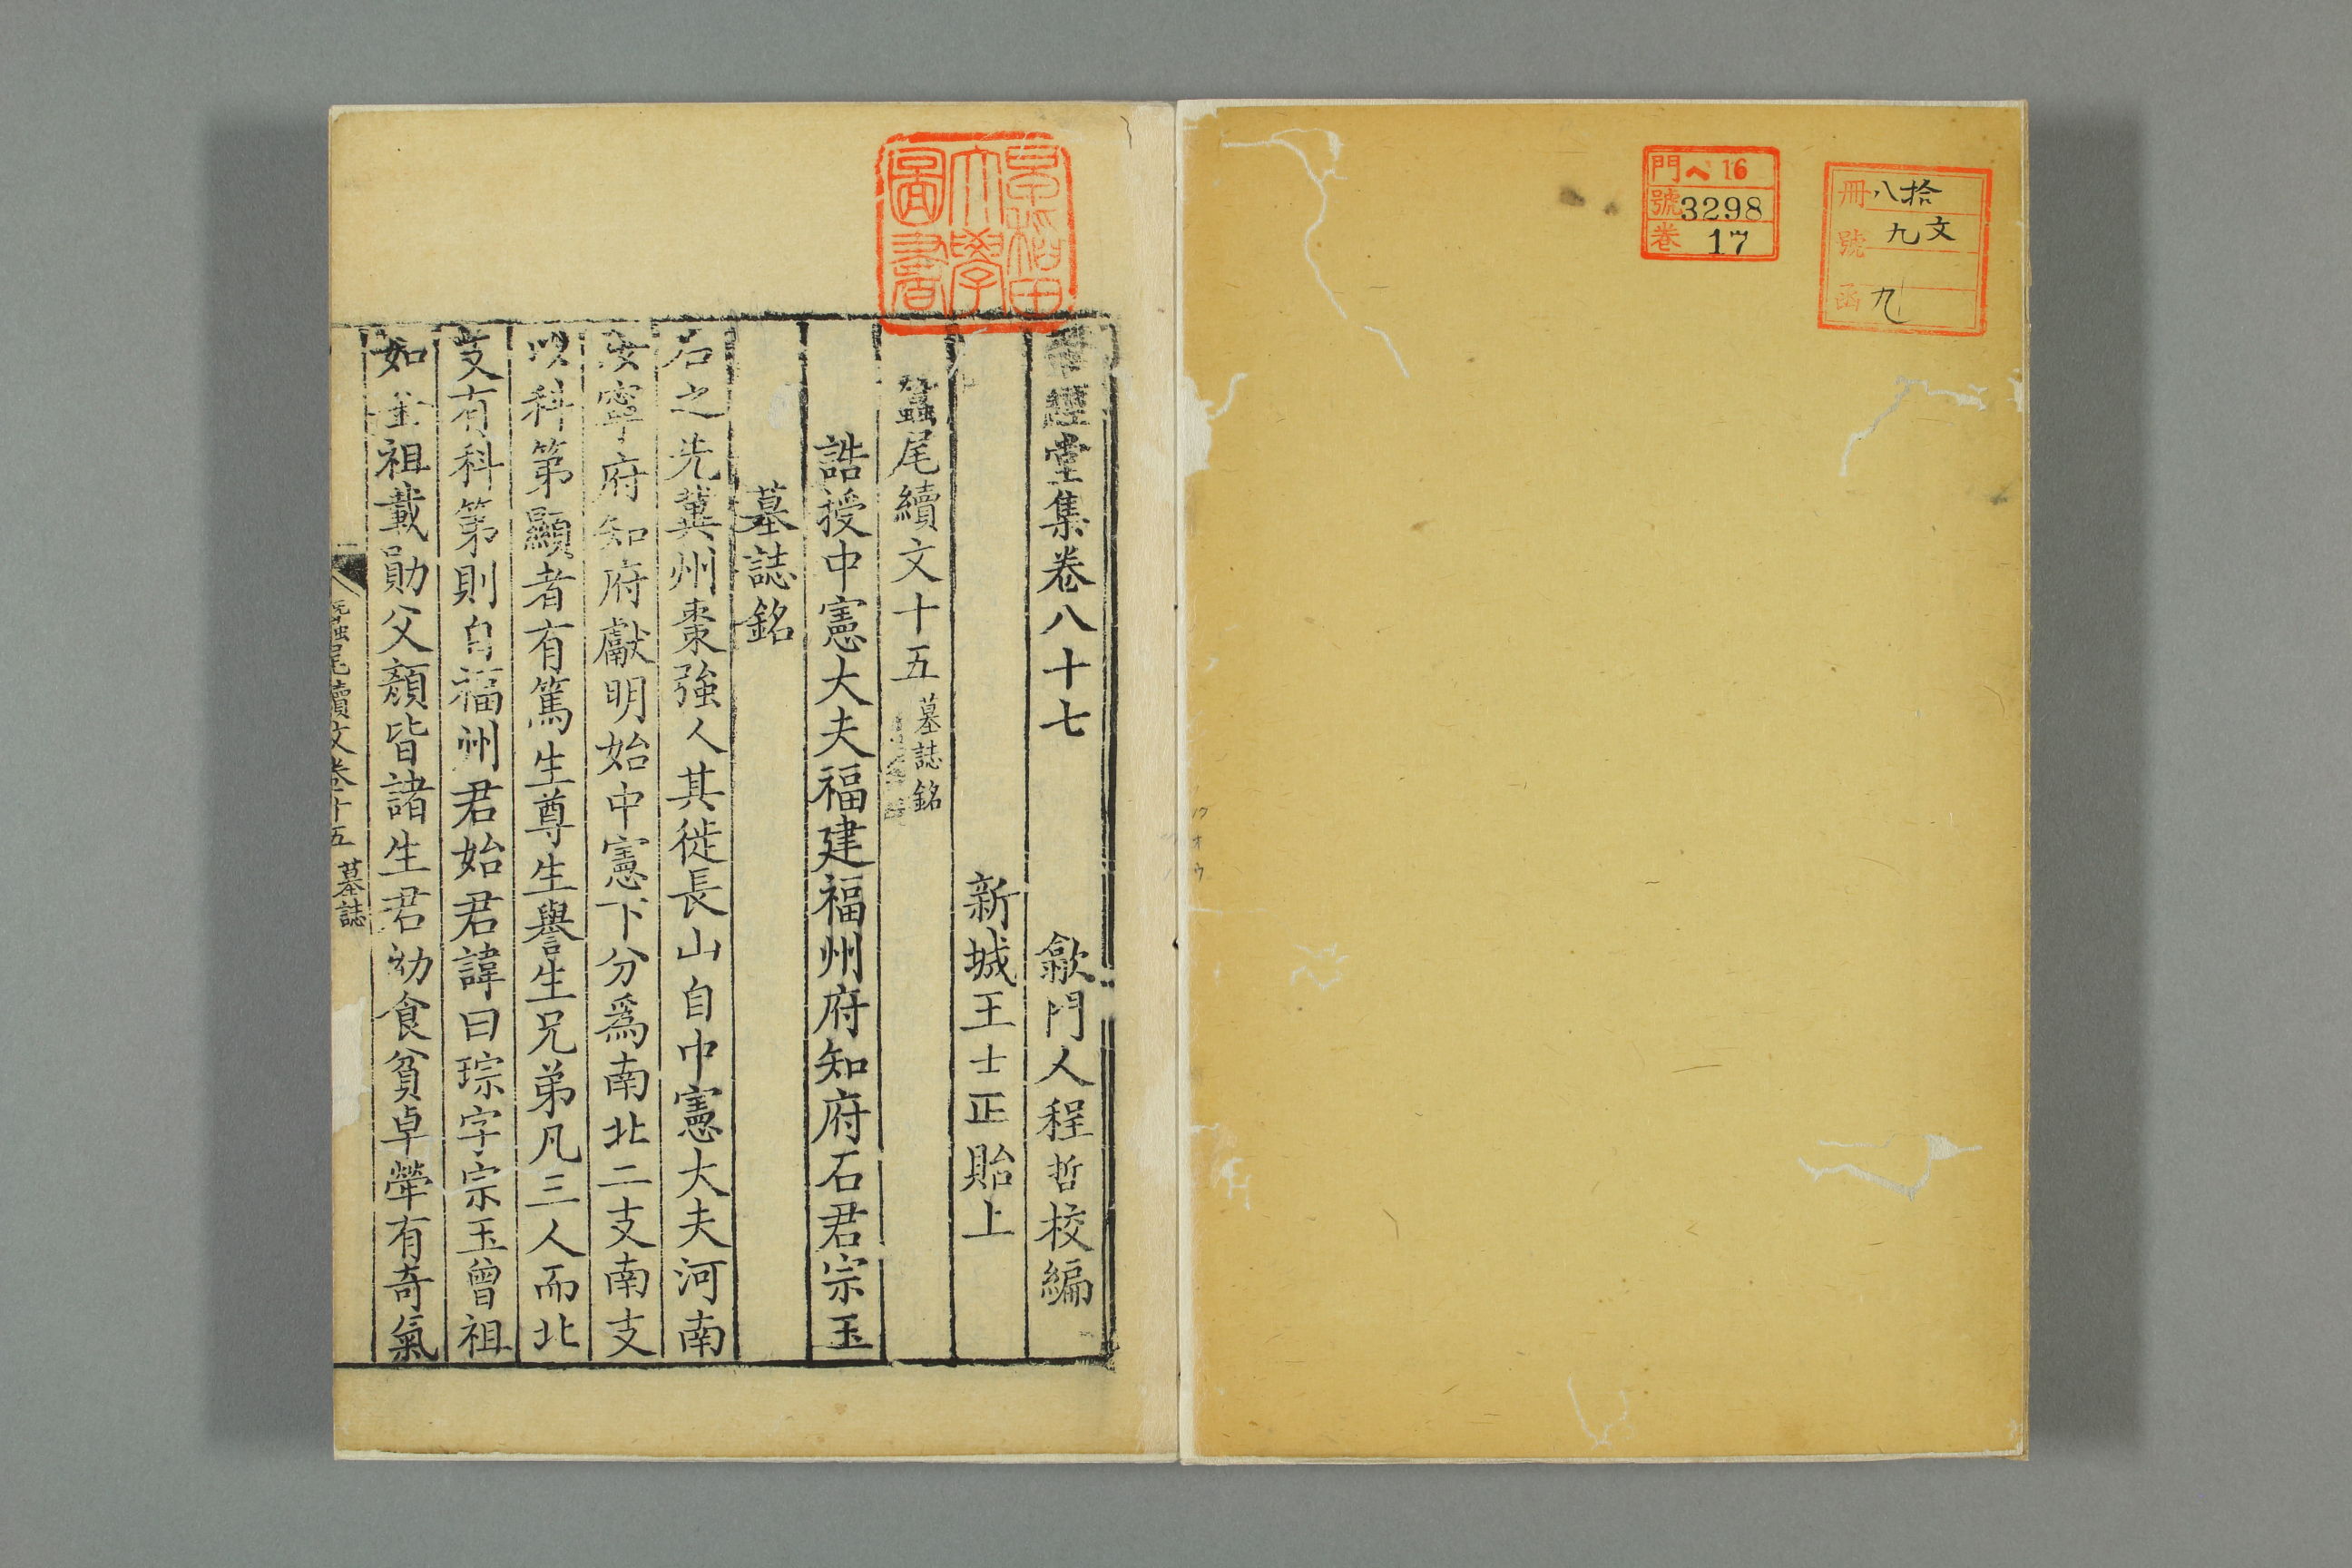 冊 八拾
號 九文
函 九
門 ヘ16
號 3298
卷 17
早稻田
大學
圖書
經堂集卷八十七 歙門人程哲校編
新城王士正貽上
蠶尾續文十五 墓誌銘
誥授中憲大夫福建福州府知府石君宗玉
墓誌銘
石之先冀州棗強人其徙長山自中憲大夫河南
汝寧府知府獻明始中憲下分爲南北二支南支
以科第顯者有篤生尊生譽生兄弟凡三人而北
支有科第則自福州君始君諱曰琮字宗玉曾祖
如金祖載勛父頯皆諸生君幼食貧卓犖有奇氣
蠶尾續文卷十五 墓誌